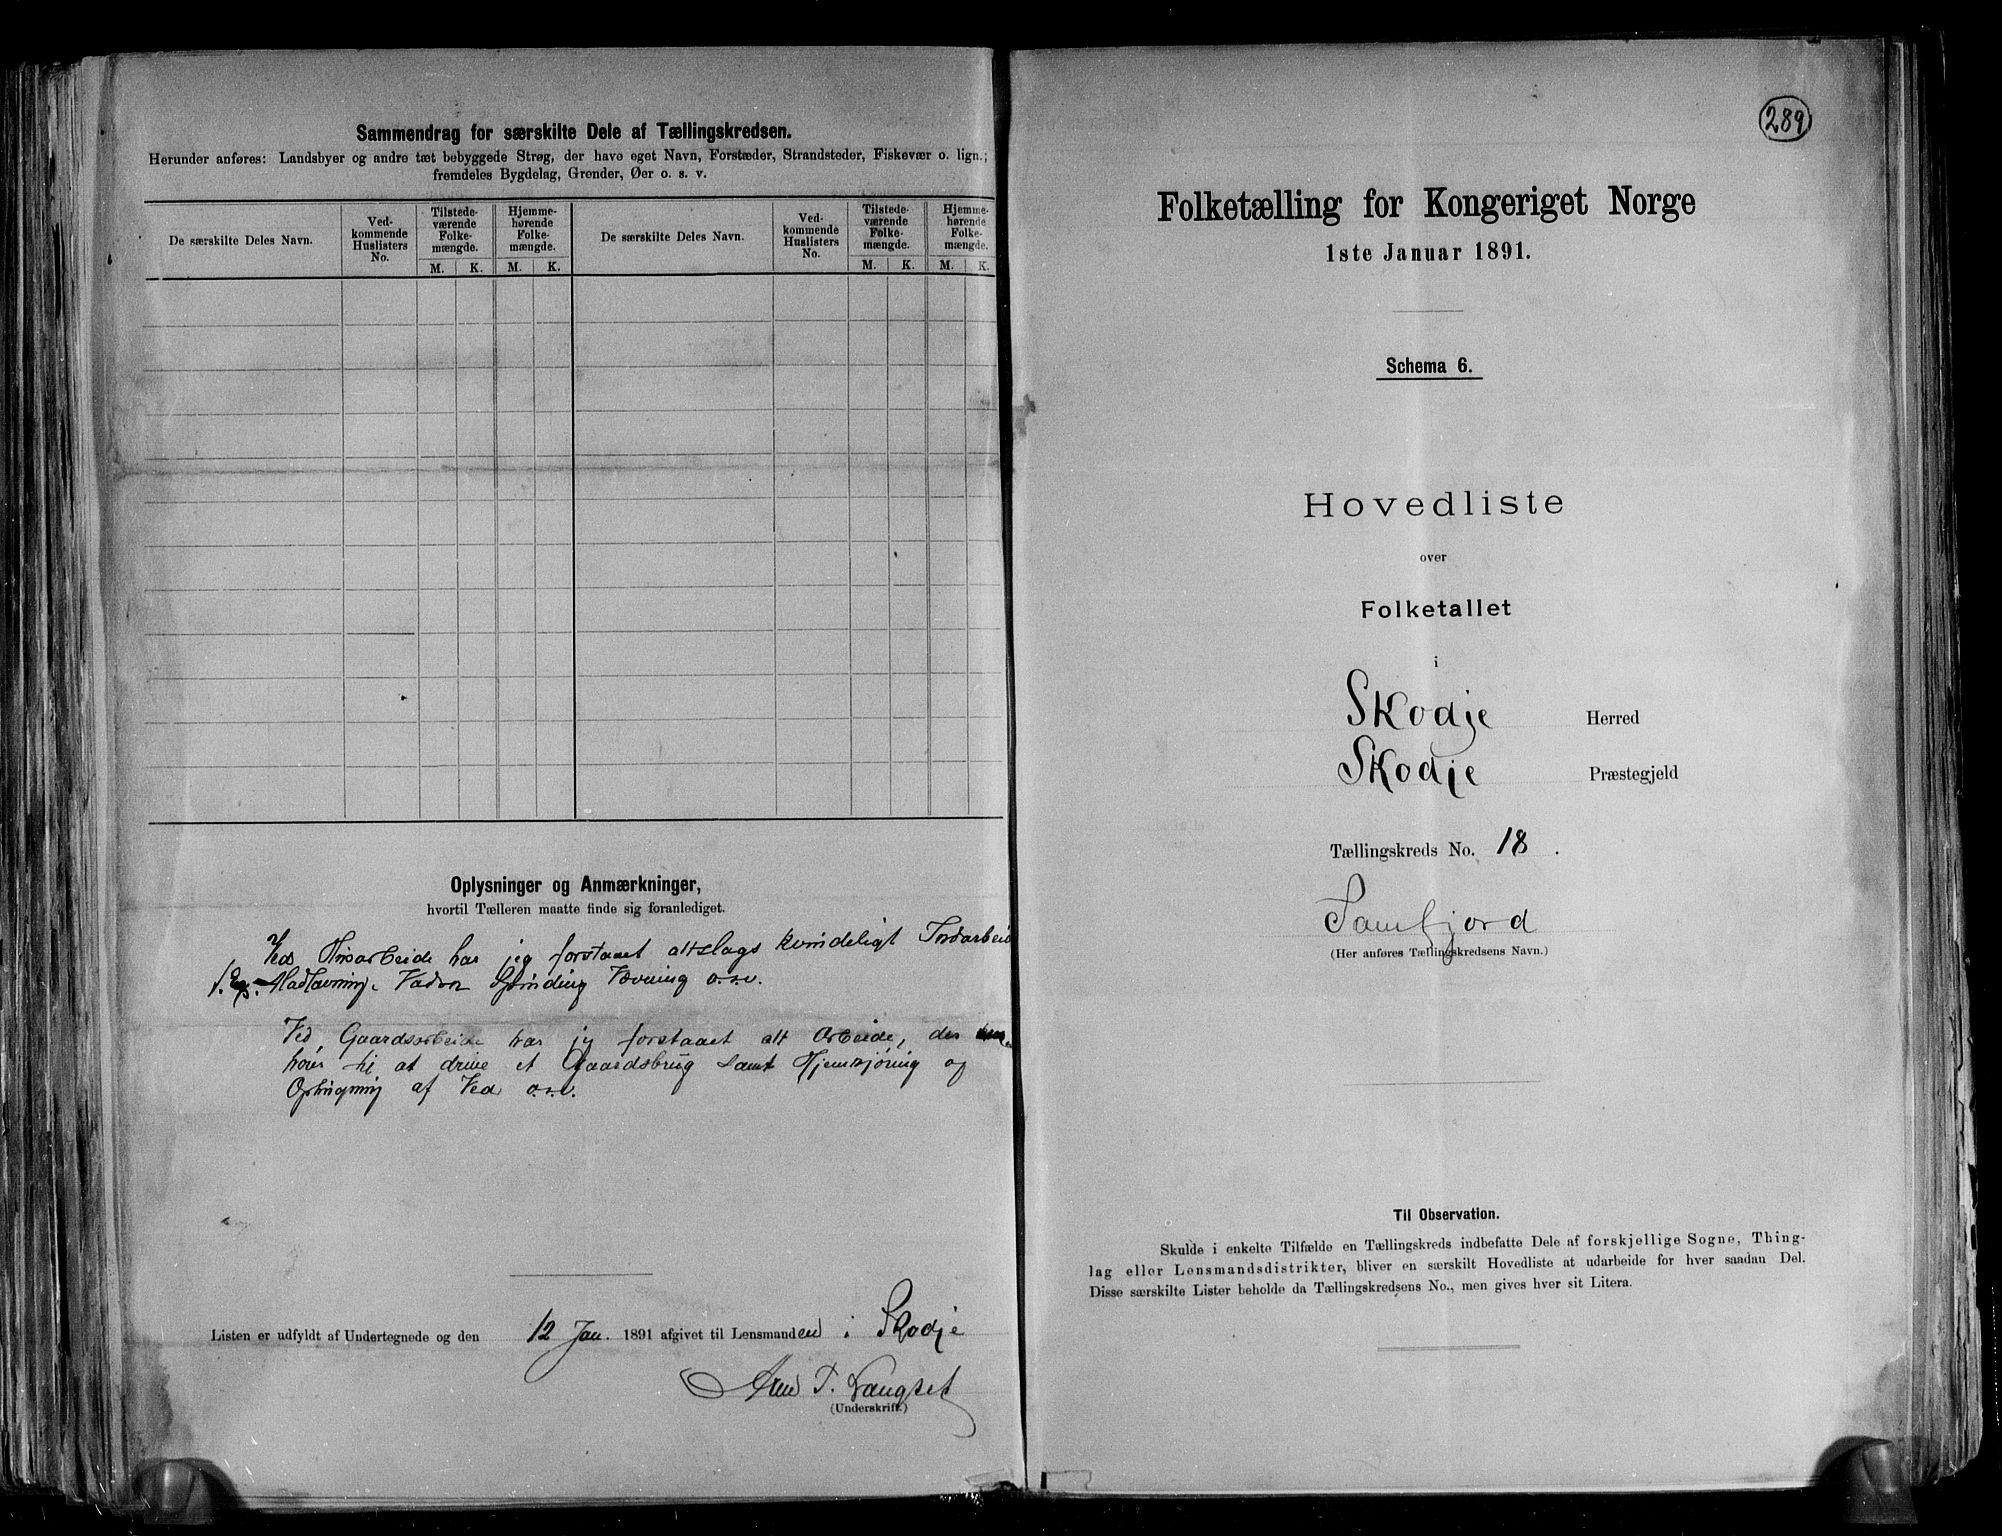 Sammendrag for særskilte Dele af Tællingskredsen.
Herunder anføres: Landsbyer og andre tæt bebyggede Strøg, der have eget Navn, Forstæder, Strandsteder, Fiskevær o. lign.;
fremdeles Bygdelag, Grender, Øer o. s. v.
De særskilte Deles Navn.
Ved-
kommende
Huslisters
No.
Tilstede-
værende
Folke-
mængde.
M. K.
Hjemme-
hørende
Folke-
mængde.
M. K.
De særskilte Deles Navn.
Ved-
kommende
Huslisters
No.
Tilstede-
værende
Folke-
mængde.
M. K.
Hjemme-
hørende
Folke-
mængde.
M. K.
Oplysninger og Anmærkninger,
hvortil Tælleren maatte finde sig foranlediget.
Ved Husarbeide har jeg forstaaet altslags kvindeligt
Madlavning, Spinding Vævning o.s.v.
Ved Gaardsarbeide har jeg forstaaet alt Arbeide, der
hører til at drive et Gaardsbrug samt Hjemkjøring og
Ophugning af Ved o.s.v.
Listen er udfyldt af Undertegnede og den 12 Jan. 1891 afgivet til Lensmanden i Skodje
T. Langset
(Underskrift.)
289
Folketælling for Kongeriget Norge
1ste Januar 1891.
Schema 6.
Hovedliste
over
Folketallet
i
Skodje Herred
Skodje Præstegjeld
Tællingskreds No. 18.
Tamfjord
(Her anføres Tællingskredsens Navn.)
Til Observation.
Skulde i enkelte Tilfælde en Tællingskreds indbefatte Dele af forskjellige Sogne, Thing-
lag eller Lensmandsdistrikter, bliver en særskilt Hovedliste at udarbeide for hver saadan Del.
Disse særskilte Lister beholde da Tællingskredsens No., men gives hver sit Litera.